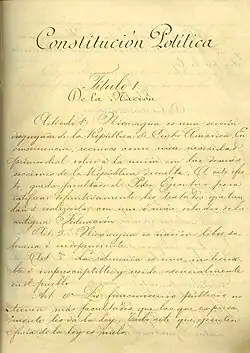 Constitución Política
Título I
De la Nación
Artículo 1º Nicaragua es una sección
disgregada de la República de Centro América. En
consecuencia, reconoce como una necesidad
primordial volver a la unión con las demás
secciones de la República disuelta. Al este efec
to, queda facultado el Poder Ejecutivo para
ratificar definitivamente los tratados que tien
dan a realizarla con uno ó más estados de la
antigua Federación.
Art. 2º Nicaragua es nación libre, so
berana é independiente.
Art. 3º La soberanía es una, inaliena
ble é imprescriptible y reside esencialmente
en el pueblo.
Art. 4º Los funcionarios públicos no
tienen más facultades que las que expresa
mente les da la ley. Todo acto que ejecuten
fuera de la ley es nulo.